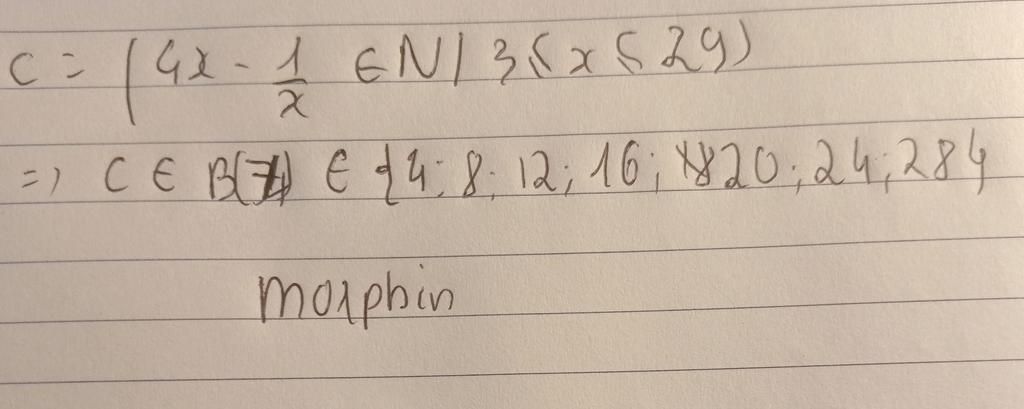 C = { 4x - 1/x ∈ N | 3 ≤ x ≤ 29 }
=> C ∈ B(4) ∈ {4; 8; 12; 16; 20; 24; 28}
morphin